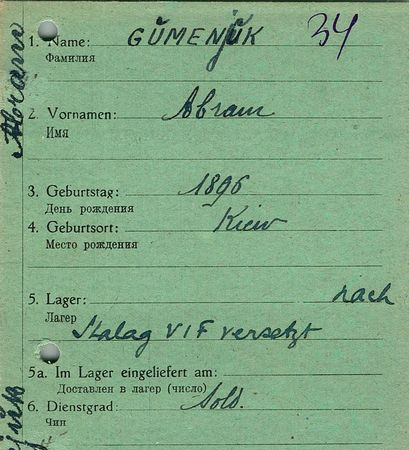 1. Name: GŬMENJŬK 34
Фамилия
2. Vornamen: Abram
Имя
3. Geburtstag: 1896
День рождения
4. Geburtsort: Kiew
Место рождения
5. Lager: nach
Лагер
Stalag VI F versetzt
5a. Im Lager eingeliefert am:
Доставлен в лагер (число)
6. Dienstgrad: Sold.
Чин
Abram